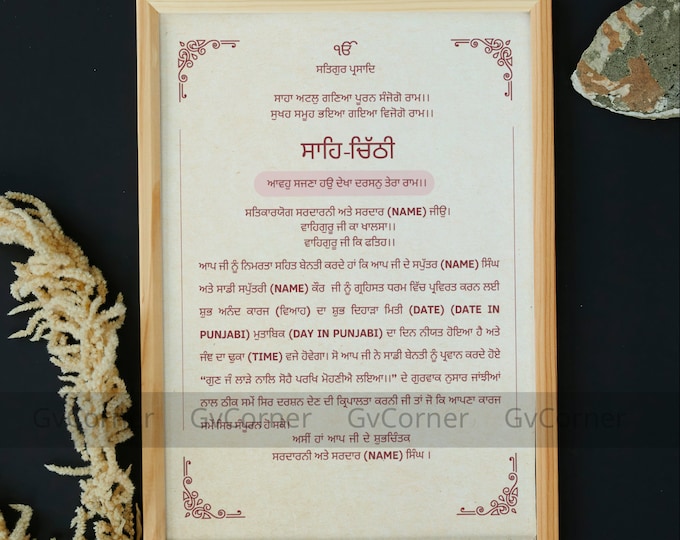 ੴ
ਸਤਿਗੁਰ ਪ੍ਰਸਾਦਿ
ਸਾਹਾ ਅਟਲੁ ਗਣਿਆ ਪੂਰਨ ਸੰਜੋਗੋ ਰਾਮ।।
ਸੁਖਹ ਸਮੂਹ ਭਇਆ ਗਇਆ ਵਿਜੋਗੋ ਰਾਮ।।
ਸਾਹਿ-ਚਿੱਠੀ
ਆਵਹੁ ਸਜਣਾ ਹਉ ਦੇਖਾ ਦਰਸਨੁ ਤੇਰਾ ਰਾਮ।।
ਸਤਿਕਾਰਯੋਗ ਸਰਦਾਰਨੀ ਅਤੇ ਸਰਦਾਰ (NAME) ਜੀਉ।
ਵਾਹਿਗੁਰੂ ਜੀ ਕਾ ਖਾਲਸਾ।।
ਵਾਹਿਗੁਰੂ ਜੀ ਕਿ ਫਤਿਹ।।
ਆਪ ਜੀ ਨੂੰ ਨਿਮਰਤਾ ਸਹਿਤ ਬੇਨਤੀ ਕਰਦੇ ਹਾਂ ਕਿ ਆਪ ਜੀ ਦੇ ਸਪੁੱਤਰ (NAME) ਸਿੰਘ
ਅਤੇ ਸਾਡੀ ਸਪੁੱਤਰੀ (NAME) ਕੌਰ ਜੀ ਨੂੰ ਗ੍ਰਹਿਸਤ ਧਰਮ ਵਿੱਚ ਪ੍ਰਵਿਰਤ ਕਰਨ ਲਈ
ਸ਼ੁਭ ਅਨੰਦ ਕਾਰਜ (ਵਿਆਹ) ਦਾ ਸ਼ੁਭ ਦਿਹਾੜਾ ਮਿਤੀ (DATE) (DATE IN
PUNJABI) ਮੁਤਾਬਿਕ (DAY IN PUNJABI) ਦਾ ਦਿਨ ਨੀਯਤ ਹੋਇਆ ਹੈ ਅਤੇ
ਜੰਞ ਦਾ ਢੁਕਾ (TIME) ਵਜੇ ਹੋਵੇਗਾ। ਸੋ ਆਪ ਜੀ ਨੇ ਸਾਡੀ ਬੇਨਤੀ ਨੂੰ ਪ੍ਰਵਾਨ ਕਰਦੇ ਹੋਏ
“ਗੁਣ ਜੰ ਲਾੜੇ ਨਾਲਿ ਸੋਹੈ ਪਰਖਿ ਮੋਹਣੀਐ ਲਇਆ।।” ਦੇ ਗੁਰਵਾਕ ਨੁਸਾਰ ਜਾਂਞੀਆਂ
ਨਾਲ ਠੀਕ ਸਮੇਂ ਸਿਰ ਦਰਸ਼ਨ ਦੇਣ ਦੀ ਕ੍ਰਿਪਾਲਤਾ ਕਰਨੀ ਜੀ ਤਾਂ ਜੋ ਕਿ ਆਪਣਾ ਕਾਰਜ
ਸਮੇਂ ਸਿਰ ਸੰਪੂਰਨ ਹੋ ਸਕੇ।
GvCorner GvCorner GvCorner
ਅਸੀਂ ਹਾਂ ਆਪ ਜੀ ਦੇ ਸ਼ੁਭਚਿੰਤਕ
ਸਰਦਾਰਨੀ ਅਤੇ ਸਰਦਾਰ (NAME) ਸਿੰਘ ।